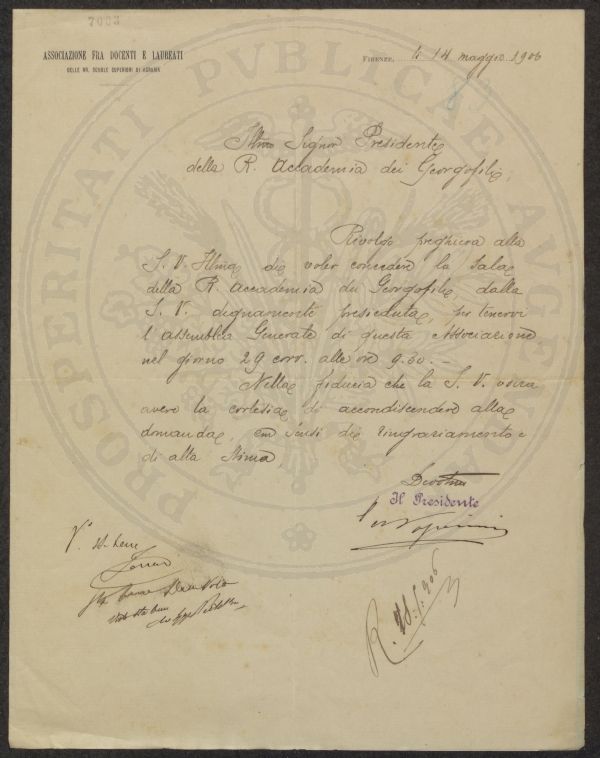 7003
ASSOCIAZIONE FRA DOCENTI E LAUREATI
DELLE RR. SCUOLE SUPERIORI DI AGRARIA
FIRENZE, li 14 maggio 1906
Illmo Signor Presidente
della R. Accademia dei Georgofili,
Rivolgo preghiera alla
S. V. Illma di voler concedere la sala
della R. Accademia dei Georgofili, dalla
S. V. degnamente presieduta, per tenervi
l'assemblea Generale di questa Associazione
nel giorno 29 corr. alle ore 9.30. —
Nella fiducia che la S. V. vorrà
avere la cortesia di accondiscendere alla
domanda, sensi di ringraziamento e
di alta stima.
Devotmo
Il Presidente
V° sta bene
sta bene
R. 28.5.906
PROSPERITATI PVBLICAE AVGENDAE